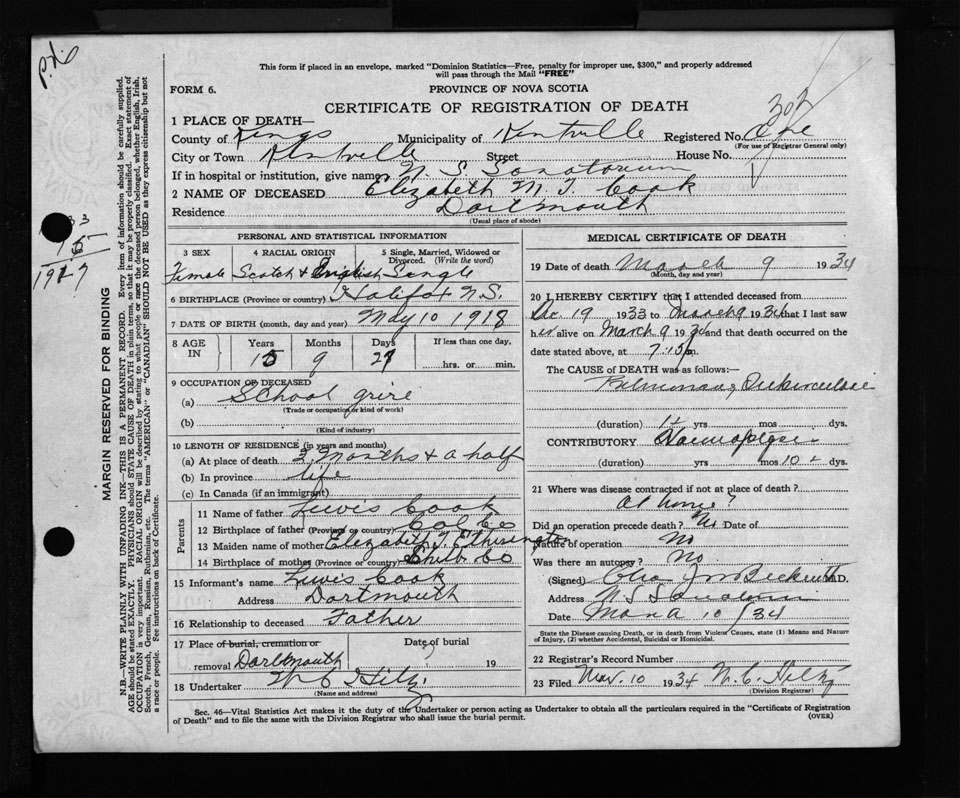 This form if placed in an envelope, marked "Dominion Statistics—Free, penalty for improper use, $300," and properly addressed
will pass through the Mail "FREE"
FORM 6.
PROVINCE OF NOVA SCOTIA
CERTIFICATE OF REGISTRATION OF DEATH
1 PLACE OF DEATH—
County of Kings Municipality of Kentville Registered No.
(For use of Registrar General only)
City or Town Kentville Street House No.
If in hospital or institution, give name N. S. Sanatorium
2 NAME OF DECEASED Elizabeth M. J. Cook
Residence Dartmouth
(Usual place of abode)
MARGIN RESERVED FOR BINDING
N.B.—WRITE PLAINLY WITH UNFADING INK—THIS IS A PERMANENT RECORD. Every item of information should be carefully supplied.
AGE should be stated EXACTLY. PHYSICIANS should STATE CAUSE OF DEATH in plain terms, so that it may be properly classified. Exact statement of
OCCUPATION is very important. RACIAL ORIGIN will be described by stating to what people or race the deceased person belonged, whether English, Irish,
Scotch, French, German, Russian, Ruthenian, etc. The terms "AMERICAN" or "CANADIAN" SHOULD NOT BE USED as they express citizenship but not
a race or people. See instructions on back of Certificate.
PERSONAL AND STATISTICAL INFORMATION
3 SEX 4 RACIAL ORIGIN 5 Single, Married, Widowed or
Divorced. (Write the word)
Female Scotch & English Single
6 BIRTHPLACE (Province or country) Halifax N.S.
7 DATE OF BIRTH (month, day and year) May 10 1918
8 AGE IN Years Months Days If less than one day,
15 9 27 hrs. or min.
9 OCCUPATION OF DECEASED
(a) School girl
(Trade or occupation or kind of work)
(b)
(Kind of industry)
10 LENGTH OF RESIDENCE (in years and months)
(a) At place of death 2 months & a half
(b) In province life
(c) In Canada (if an immigrant)
Parents
11 Name of father Lewis Cook
12 Birthplace of father (Province or country) Col Co
13 Maiden name of mother Elizabeth
14 Birthplace of mother (Province or country) Co
15 Informant's name Lewis Cook
Address Dartmouth
16 Relationship to deceased Father
17 Place of burial, cremation or Date of burial
removal Dartmouth 19
18 Undertaker
(Name and address)
MEDICAL CERTIFICATE OF DEATH
19 Date of death March 9 1934
(Month, day and year)
20 I HEREBY CERTIFY that I attended deceased from
Dec. 19 1933 to March 9 1934 that I last saw
her alive on March 9 1934 and that death occurred on
date stated above, at 7.15 p.m.
The CAUSE of DEATH was as follows:—
Pulmonary Tuberculosis
(duration) yrs mos dys.
CONTRIBUTORY Haemoptysis
(duration) yrs mos 10 dys.
21 Where was disease contracted if not at place of death?
At home?
Did an operation precede death? No Date of
Nature of operation No
Was there an autopsy? No
(Signed) M.D.
Address
Date March 10/34
State the Disease causing Death, or in death from Violent Causes, state (1) Means and Nature
of Injury, (2) whether Accidental, Suicidal or Homicidal.
22 Registrar's Record Number
23 Filed Mar. 10 1934
(Division Registrar)
Sec. 46—Vital Statistics Act makes it the duty of the Undertaker or person acting as Undertaker to obtain all the particulars required in the "Certificate of Registration
of Death" and to file the same with the Division Registrar who shall issue the burial permit.
(OVER)